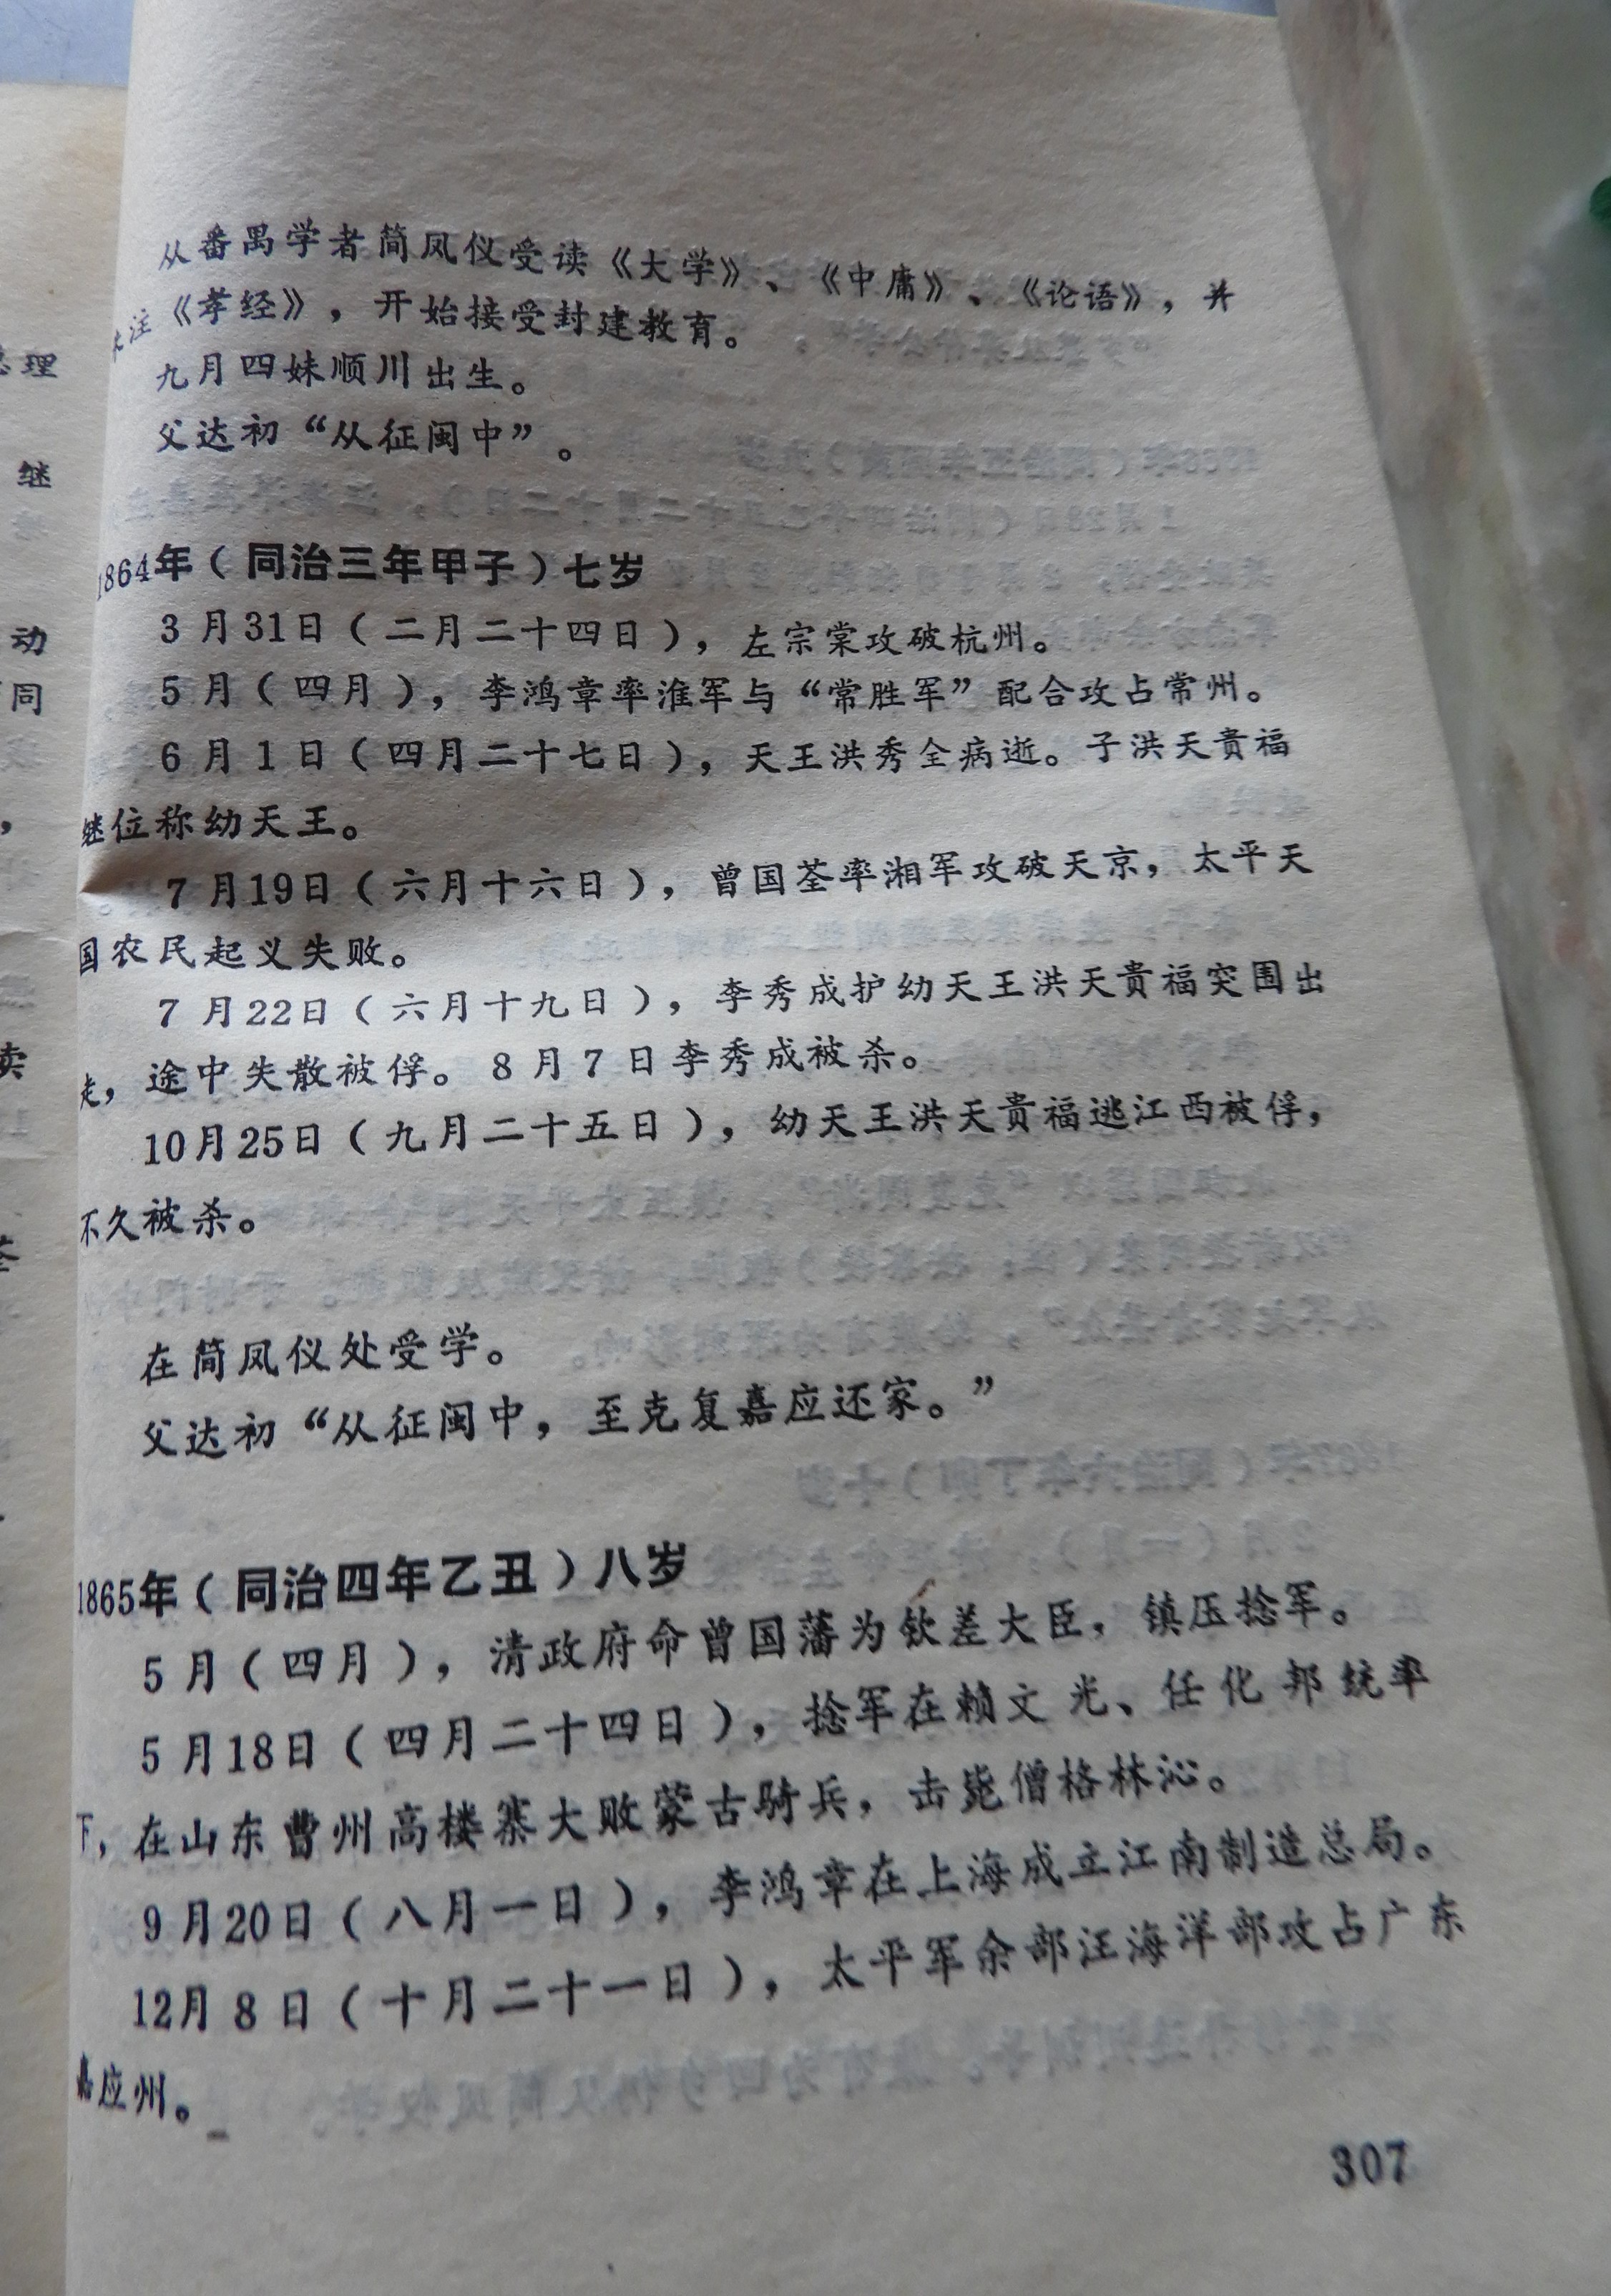 从番禺学者简凤仪受读《大学》、《中庸》、《论语》，并
注《孝经》，开始接受封建教育。
九月四妹顺川出生。
父达初“从征闽中”。
1864年（同治三年甲子）七岁
3月31日（二月二十四日），左宗棠攻破杭州。
5月（四月），李鸿章率淮军与“常胜军”配合攻占常州。
6月1日（四月二十七日），天王洪秀全病逝。子洪天贵福
继位称幼天王。
7月19日（六月十六日），曾国荃率湘军攻破天京，太平天
国农民起义失败。
7月22日（六月十九日），李秀成护幼天王洪天贵福突围出
走，途中失散被俘。8月7日李秀成被杀。
10月25日（九月二十五日），幼天王洪天贵福逃江西被俘，
不久被杀。
在简凤仪处受学。
父达初“从征闽中，至克复嘉应还家。”
1865年（同治四年乙丑）八岁
5月（四月），清政府命曾国藩为钦差大臣，镇压捻军。
5月18日（四月二十四日），捻军在赖文光、任化邦统率
下，在山东曹州高楼寨大败蒙古骑兵，击毙僧格林沁。
9月20日（八月一日），李鸿章在上海成立江南制造总局。
12月8日（十月二十一日），太平军余部汪海洋部攻占广东
嘉应州。
307
理
继
动
同